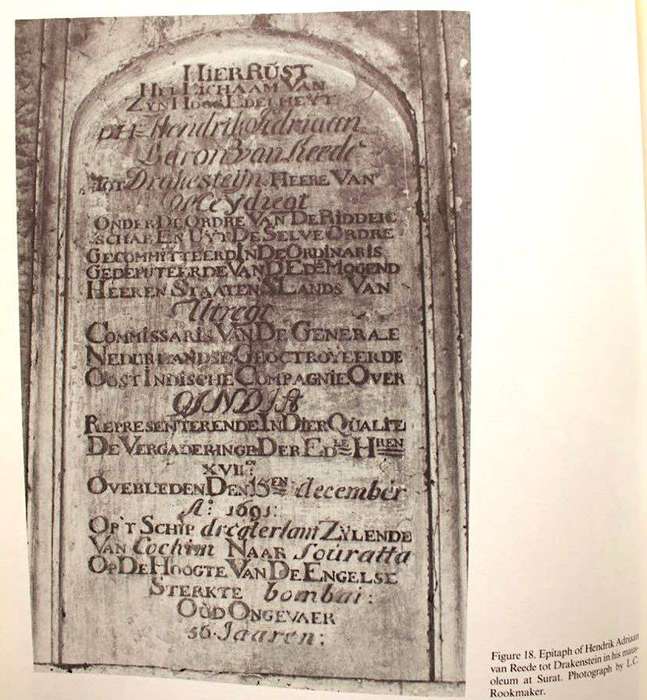 HIER RUST
HET LICHAAM VAN
ZYN HOOG EDELHEYT
DHr Hendrik Adriaan
Baron Van Reede
TOT Drakesteijn HEERE VAN
ONDER DE ORDRE VAN DE RIDDER
SCHAP EN UYT DE SELVE ORDRE
GECOMMITTEERD IN DE ORDINARIS
GEDEPUTEERDE VAN D EDe MOGEND
HEEREN STAATEN SLANDS VAN
Utregt
COMMISSARIS VAN DE GENERALE
NEDERLANDSE GEOCTROYEERDE
OOST INDISCHE COMPAGNIE OVER
INDIA
REPRESENTERENDE IN DIER QUALITE
DE VERGADERINGE DER EDLE HREN
XVII.
OVERLEDEN DEN 15EN december
Ao: 1691:
OP'T SCHIP dregterlant ZYLENDE
VAN Cochim NAAR Souratta
OP DE HOOGTE VAN DE ENGELSE
STERKTE bombai:
OUD ONGEVAER
56 Jaaren:
Figure 18. Epitaph of Hendrik Adriaan
van Reede tot Drakenstein in his maus-
oleum at Surat. Photograph by L.C.
Rookmaker.